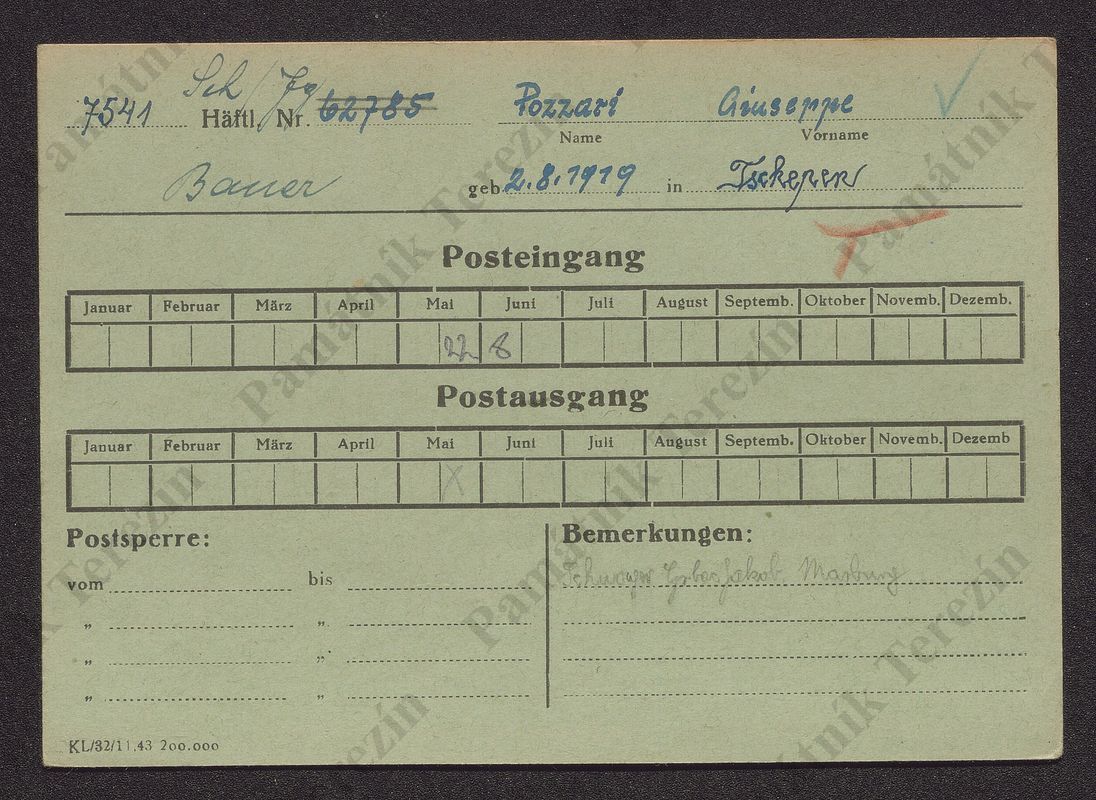 Sch/Jg
7541 Häftl. Nr. 62785 Pozzari Giuseppe
Name Vorname
Bauer geb. 2.8.1919 in Tschepen
Posteingang
Januar Februar März April Mai Juni Juli August Septemb. Oktober Novemb. Dezemb.
22 8
Postausgang
Januar Februar März April Mai Juni Juli August Septemb. Oktober Novemb. Dezemb
X
Postsperre: Bemerkungen:
vom bis Marburg
„ „
„ „
„ „
KL/32/11.43 200.000
Památník Terezín